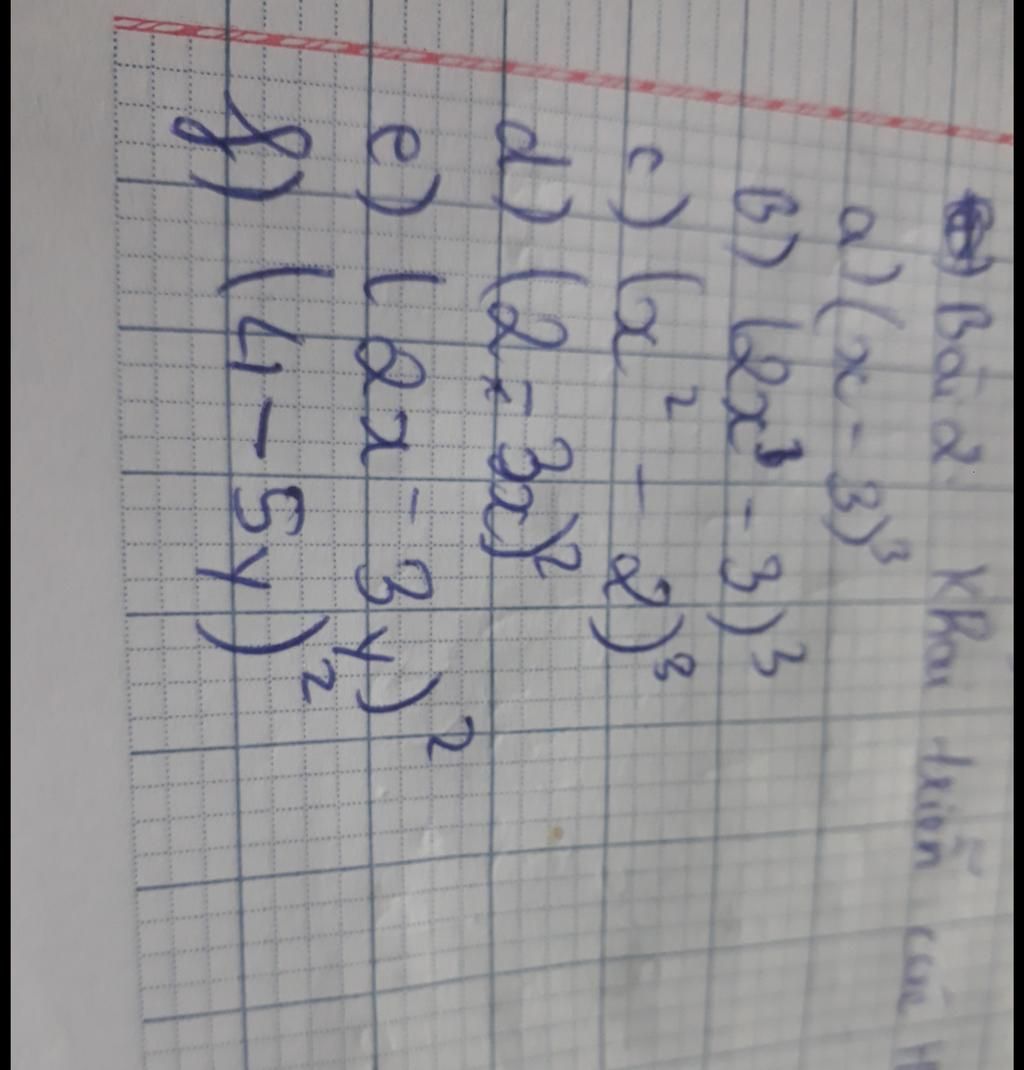 Bài 2. Khai triển các
a) (x - 3)³
b) (2x³ - 3)³
c) (x² - 2)³
d) (2 - 3x)²
e) (2x - 3y)²
f) (4 - 5y)²